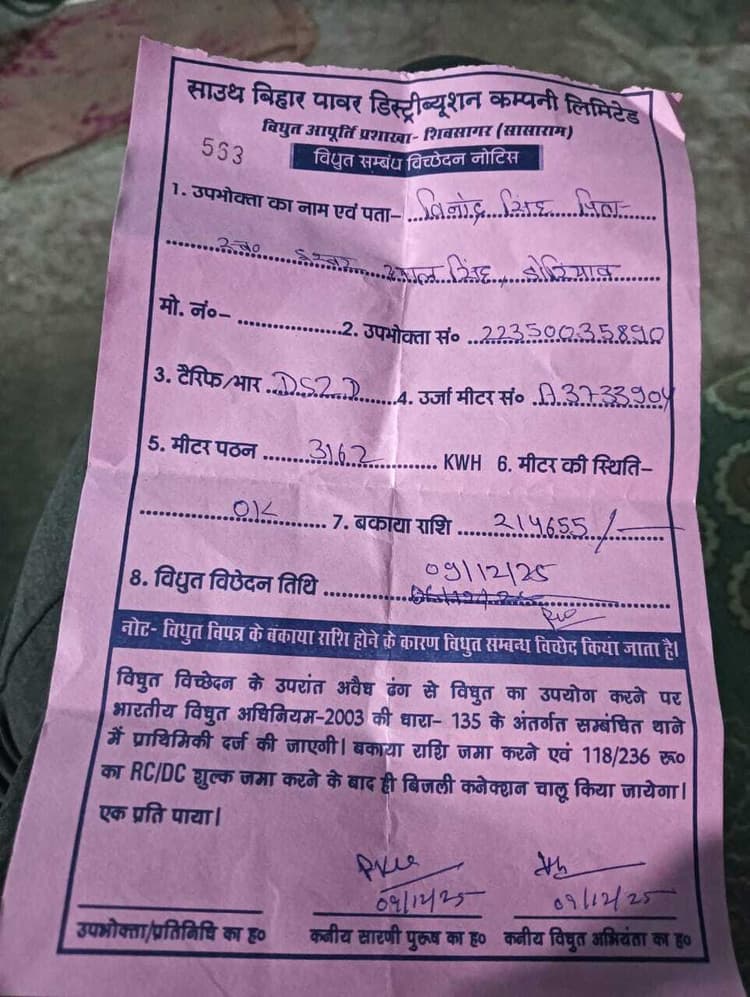 साउथ बिहार पावर डिस्ट्रीब्यूशन कम्पनी लिमिटेड
विधुत आपूर्ति प्रशाखा- शिवसागर (सासाराम)
563
विधुत सम्बंध विच्छेदन नोटिस
1. उपभोक्ता का नाम एवं पता- विनोद सिंह पिता-
स्व० दयाल सिंह,
मो. नं०- 2. उपभोक्ता सं० 22350035890
3. टैरिफ/भार DS2D 4. उर्जा मीटर सं० A3733904
5. मीटर पठन 3162 KWH 6. मीटर की स्थिति-
OK 7. बकाया राशि 214655/-
09/12/25
8. विधुत विछेदन तिथि
नोट- विधुत विपत्र के बकाया राशि होने के कारण विधुत सम्बन्ध विच्छेद किया जाता है।
विधुत विच्छेदन के उपरांत अवैध ढंग से विधुत का उपयोग करने पर
भारतीय विधुत अधिनियम-2003 की धारा- 135 के अंतर्गत सम्बंधित थाने
में प्राथिमिकी दर्ज की जाएगी। बकाया राशि जमा करने एवं 118/236 रू०
का RC/DC शुल्क जमा करने के बाद ही बिजली कनेक्शन चालू किया जायेगा।
एक प्रति पाया।
09/12/25 09/12/25
उपभोक्ता/प्रतिनिधि का ह० कनीय सारणी पुरूष का ह० कनीय विधुत अभियंता का ह०